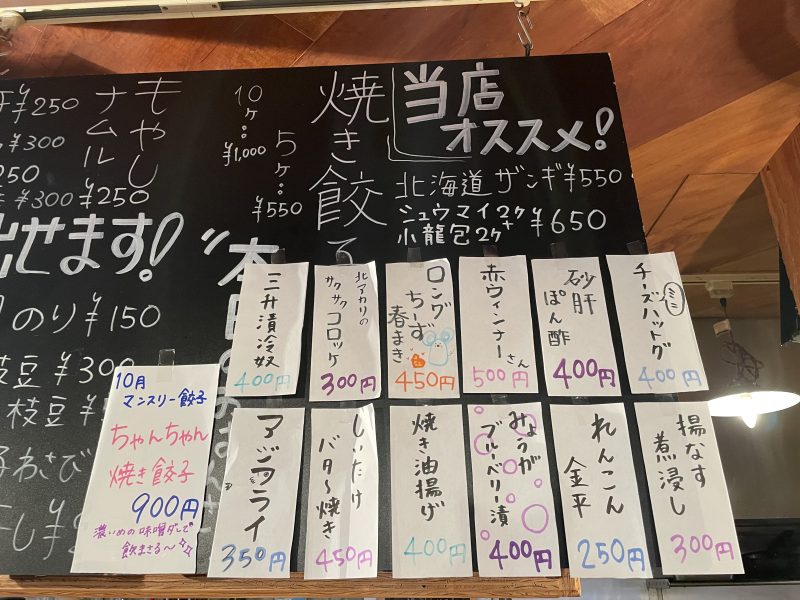 当店
オススメ!
北海道ザンギ¥550
シュウマイ2ヶ+
小龍包2ヶ
¥650
焼き餃子
5ヶ:
¥550
10ヶ:
¥1,000
もやし
ナムル
¥250
¥250
¥300
250
¥300
出せます!
のり¥150
枝豆¥300
枝豆¥
わさび
チーズハットグ
(ミニ)
400円
砂肝
ぽん酢
400円
赤ウィンナーさん
500円
ロング
ちーず
春まき
450円
北アカリの
サクサクコロッケ
300円
三升漬冷奴
400円
揚なす
煮浸し
300円
れんこん
金平
250円
みょうが
ブルーベリー漬
400円
焼き油揚げ
400円
しいたけ
バター焼き
450円
アジフライ
350円
10月
マンスリー餃子
ちゃんちゃん
焼き餃子
900円
濃いめの味噌ダレで
飲まさる〜